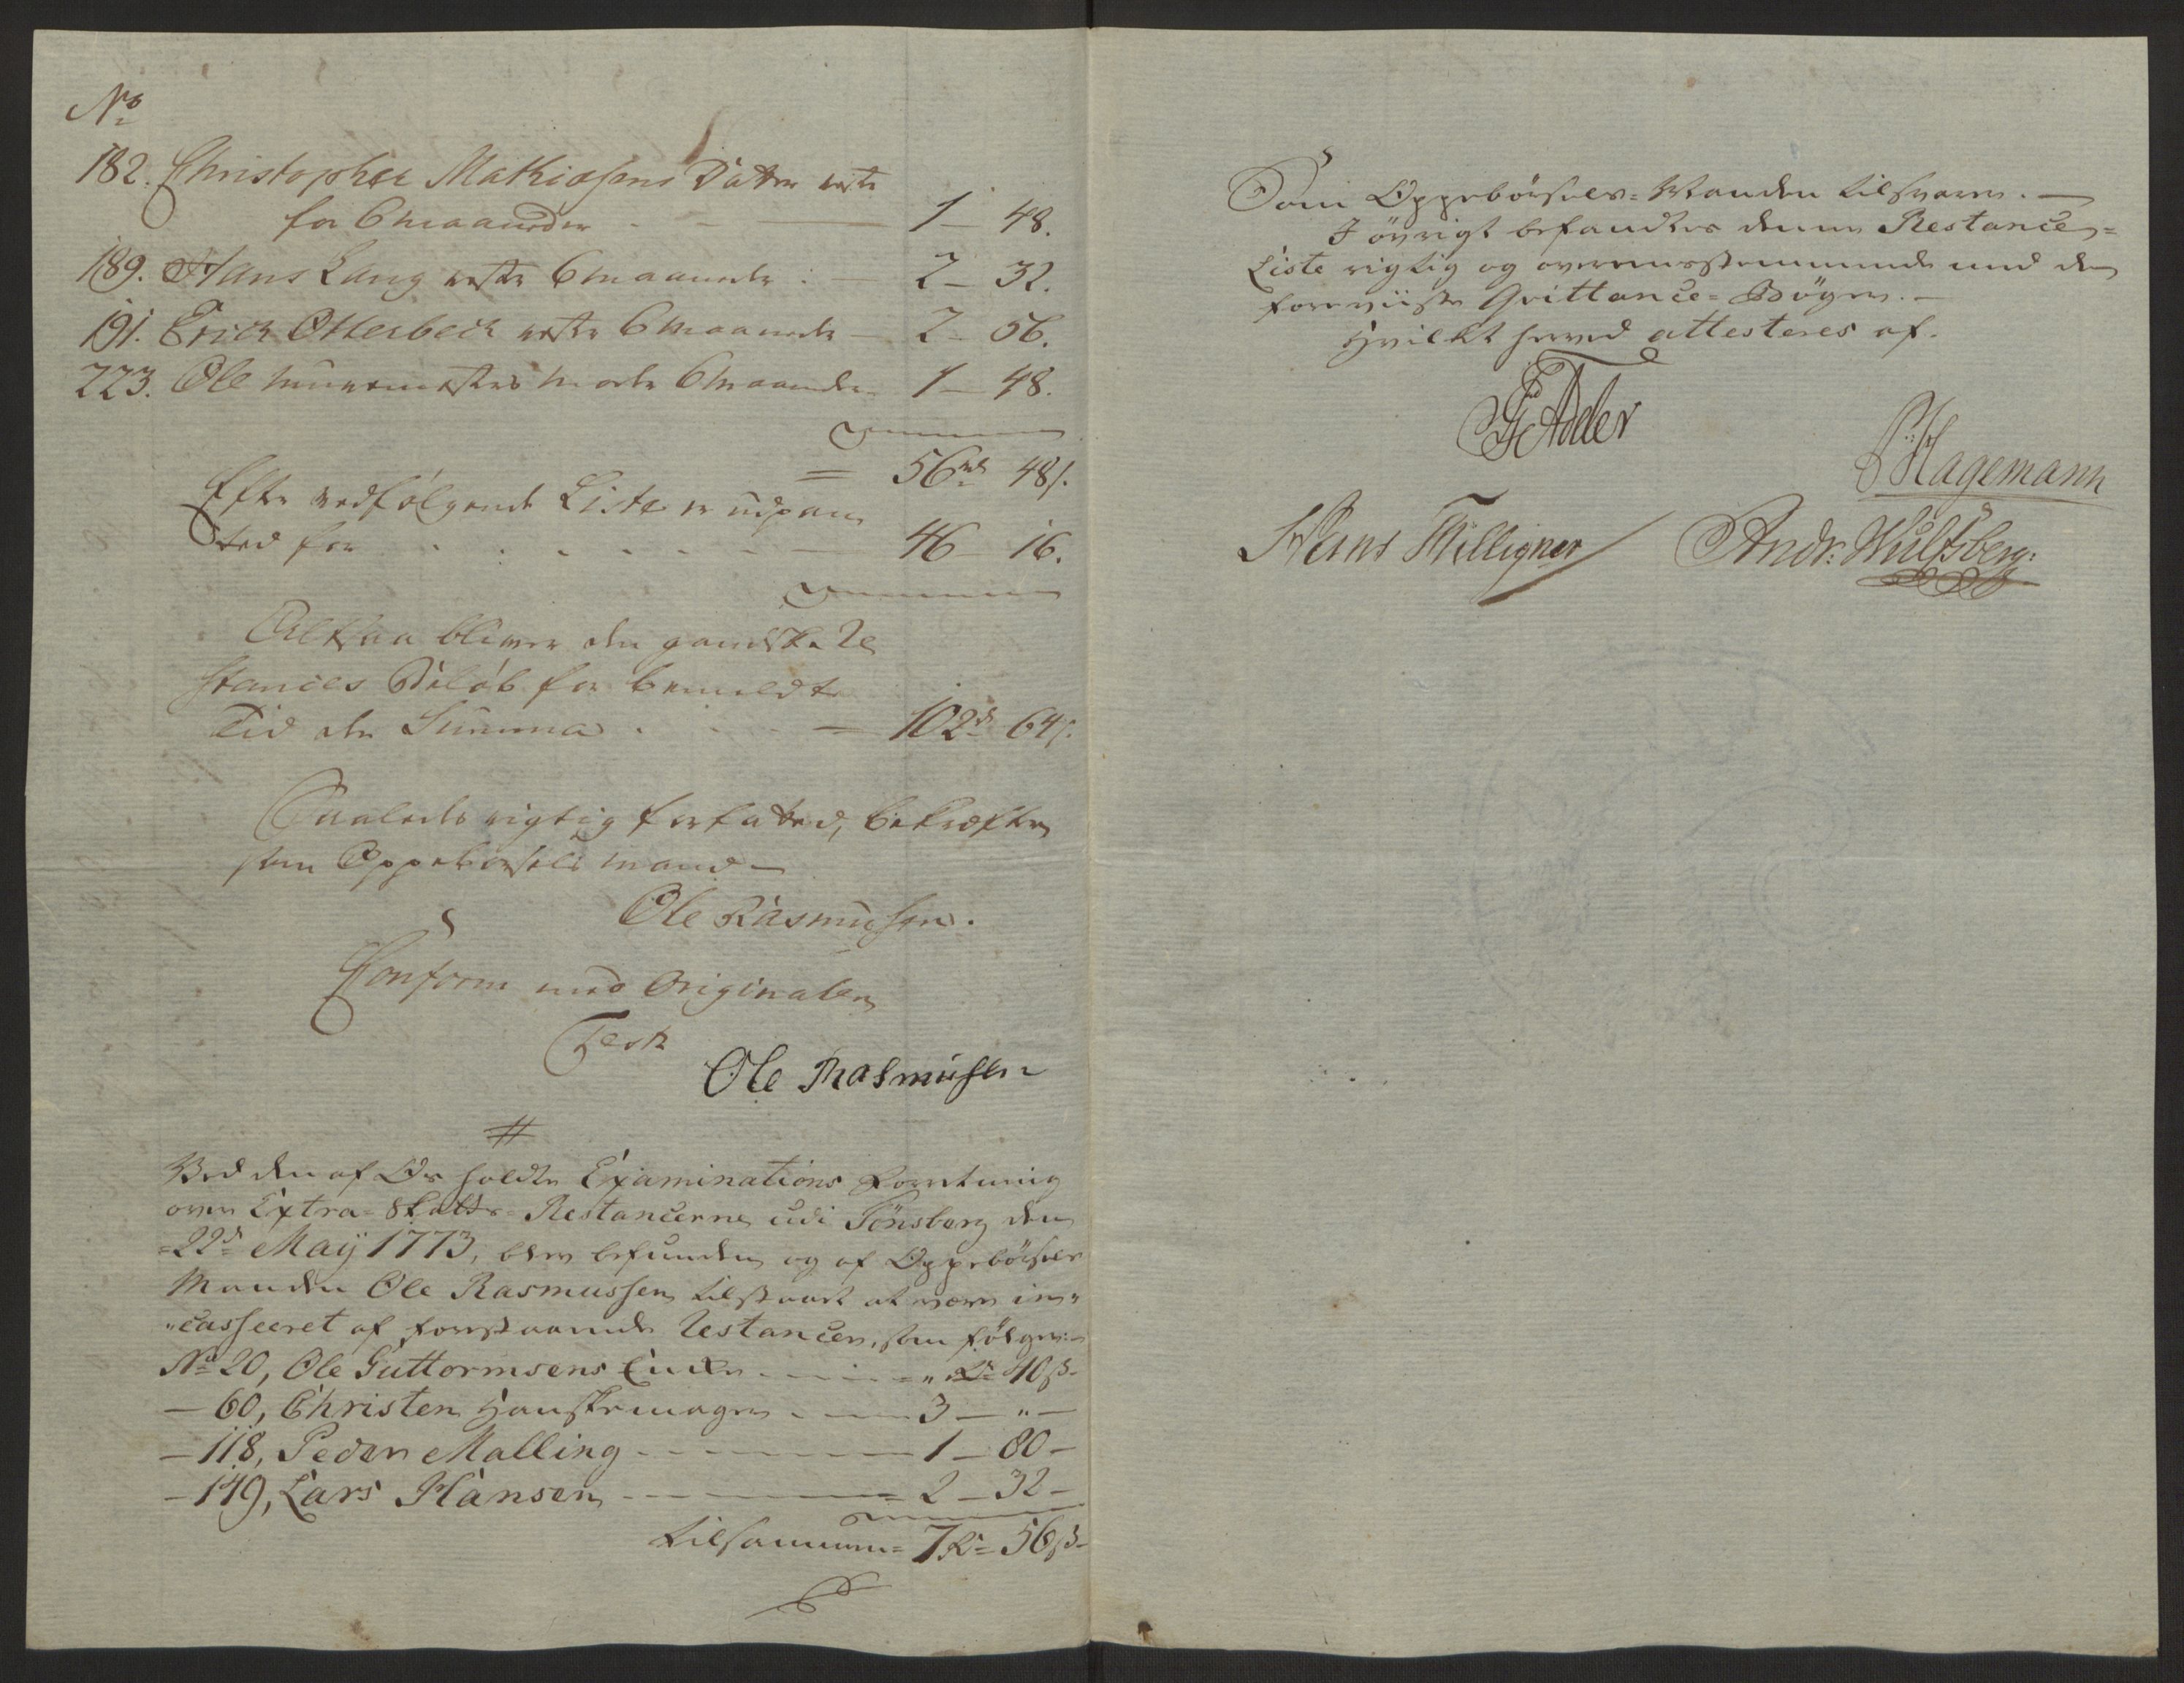 No
182. Christopher Mathiesens Datter rester
for 6 maaneder - - 1 - 48.
189. Hans Lang rester 6 maaneder : - 2 - 32.
191. Erich Otterbech rester 6 maaneder - 2 - 56.
223. Ole Muurmesters Moder 6 maaneder - 1 - 48.
= 56rd 48s.
Efter vedfølgende Liste er udpan
ted for . . . . . . - 46 - 16.
Altsaa bliver den gandske Re
stances Beløb for bemeldte
Tid den Summa . - - - 102d 64s.
Saaledes rigtig forfatted, bekræfter
som Oppebørsels mand -
Ole Rasmussen.
Conform med Originalen
Test
Ole Rasmussen
#
Ved den af Os holdte Examinations Forretning
over Extra-Skatts-Restancerne udi Tönsberg den
=22d Maij 1773, blev befunden og af Oppebörsels
Manden Ole Rasmussen tilstaaet at være in„
„casseeret af forestaaende Restancer, som følger:-
No 20, Ole Guttormsens Enke - - - - = „ Rd= 40s-
- 60, Christen Handskemager - - - 3 - „ -
- 118, Peder Malling - - - - - 1 - 80 -
- 149, Lars Hansen - - - - = 2 - 32 -
tilsammen = 7 Rd= 56s-
Som Oppebörsels-Manden tilsvarer. -
I övrigt befandtes denne Restance-
Liste rigtig og overensstemmende med den
foreviiste Qvittance-Böger. -
Hvilket herved attesteres af.
G Adler
Hagemann
Hans Tilligner Andr: Wulfsberg: